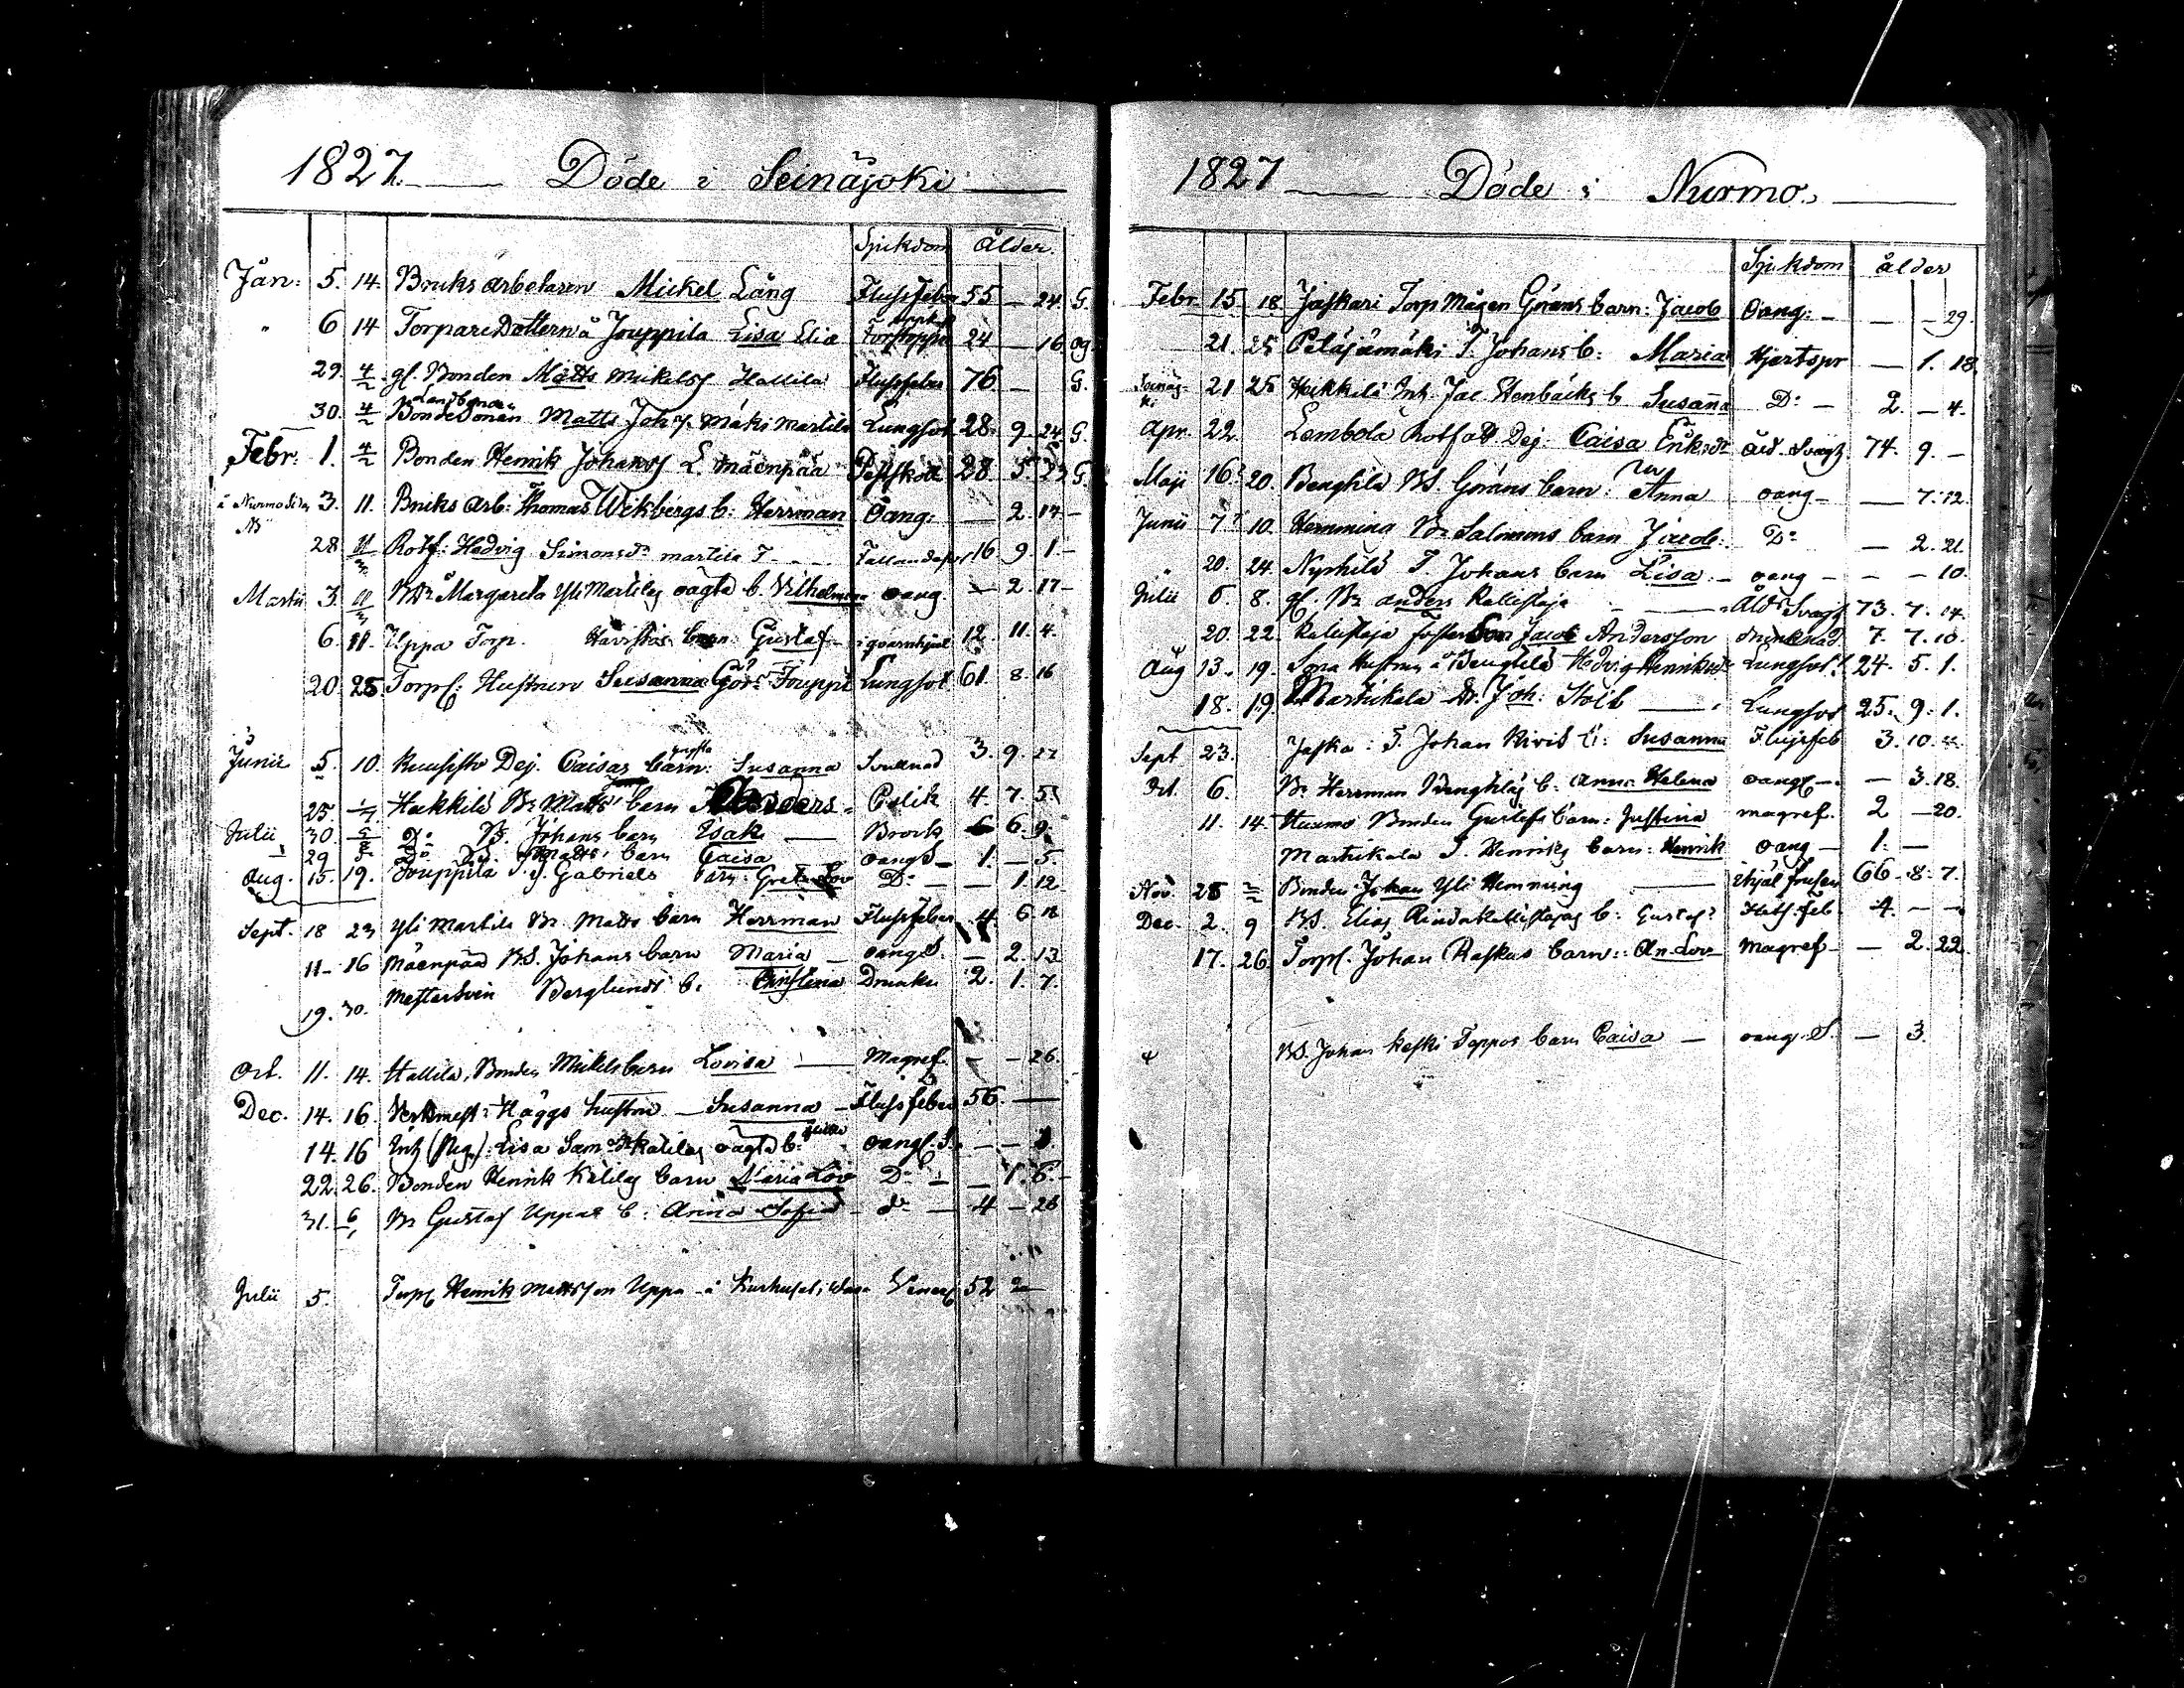 1827. Döde i Seinäjoki
Sjukdom ålder.
Jan: 5. 14. Bruks arbetaren Mickel Lång Flussfeber 55 — 24. G.
" 6 14 Torpare Dottern å Jouppila Lisa Elia 24 — 16 og
29. 4/2 gl. Bonden Matts Mickelss Hallila Flussfeber 76 — G.
Landbonde
30. 4/2 Bonde Sonen Matts Joh Mäki Martila Lungsot 28. 9. 24 G.
Febr: 1. 4/2 Bonden Henrik Johanss L. Mäenpää 28 5. 23 G.
å Nurmo 3. 11. Bruks Arb: Thomas Wikbergs b: Herrman Oang: — 2. 14 —
28 11/3 Rotf: Hedvig Simonsdr Martila T. Fallandesot 16 9 1. —
Martii 3. 11/3 Margareta Yli Martilas oägta b. Vilhelmina oang. — 2. 17 —
6. 11. Uppa Torp. barn: Gustaf i qvarnhjul 12. 11. 4.
20. 25. Torp: Hustrun Susanna Görs Jouppi Lungsot 61 8. 16
Junii 5. 10. Kuusisto Dej. Caisas oägta barn: Susanna 3. 9. 27
25. 1/7 Hakkila Br Matts barn Anders Colik 4. 7. 5.
Julii 30 Do BS. Johans barn Esak — Brock 6. 9.
29 Do Do Matts barn Caisa oangS — 1. — 5.
Aug. 15. 19. Jouppila Gabriels barn: Greta Lov Do — — 1. 12
Sept. 18 23 Yli Martila Br Matts barn Herrman Flussfeber 4. 6. 18
11 - 16 Mäenpää BS. Johans barn Maria — oangS. — 2. 13
19. 30. Mestersven Berglunds b. Christina 2. 1. 7.
Oct. 11. 14. Hallila, Bonden Mickels barn Lovisa — Magref — — 26.
Dec. 14. 16. Häggs hustru — Susanna — Flussfeber 56. —
14. 16 Inh (Pig.): Lisa Katilas oägta b. oang. S. — —
22. 26. Bonden Henrik Katilas barn Maria Lov Do — — 1. 6. —
31. 6/1 Br Gustaf Uppas b: Anna Sofia — do — 4 — 26
Julii 5. Torp Henrik Mattsson Uppa å Kurhuset i Wasa Venerf 52 2

1827 Döde i Nurmo.
Sjukdom ålder
Febr. 15. 18 Jaskari Torp Mågen Görans barn: Jacob Oang: — — — 29.
21. 25 Peläjämäki T. Johans b: Maria Hjertspr — 1. 18.
Seinäjoki 21 25 Heikkilä Inh. Jac. Stenbäcks b Susanna Do — 2. — 4.
Apr. 22 Lembola Rotfatt. Dej: Caisa Eriksdr Åld. Svagh. 74. 9. —
Maji 16 20. Bengtila BS. Görans barn: Anna oang — — 7. 12.
Junii 7 10. Hemming Br Salomons barn Jacob: Do — 2. 21.
" 20. 24. Nyrhilä T Johans barn Lisa: — oang — — — 10.
Julii 6. 8. gl. Br Anders Kallistaja — Åld Svagh 73. 7. 14.
20. 22. Kallistaja fosterson Jacob Andersson drunknad 7. 7. 10.
Aug 13. 19. Sona Hustrun å Bengtila Hedvig Henriksdr Lungsot. 24. 5. 1.
18. 19. Martikala Dr. Joh: Stolt — Lungsot 25. 9. 1.
Sept 23. Jaska: T. Johan b: Susanna Flussfeb 3. 10.
Oct. 6. Br Herrman Bengtilas b: Anna Helena oang — — 3. 18.
11. 14. Bonden Gustafs barn: Justina magref. 2 — 20.
Martikala T. Henriks barn: Henrik oang — 1. —
Nov. 28 Bonden Johan Yli Hemming — ihjälfrusen 66. 8. 7.
Dec. 2. 9 BS. Elias Rinda Kallistajas b: Gustaf 4. — —
17. 26. Torp. Johan Raskus barn: An. Lov — Magref — — 2. 22.
BS. Johan Keski Toppos barn Caisa — oang. S. — 3.